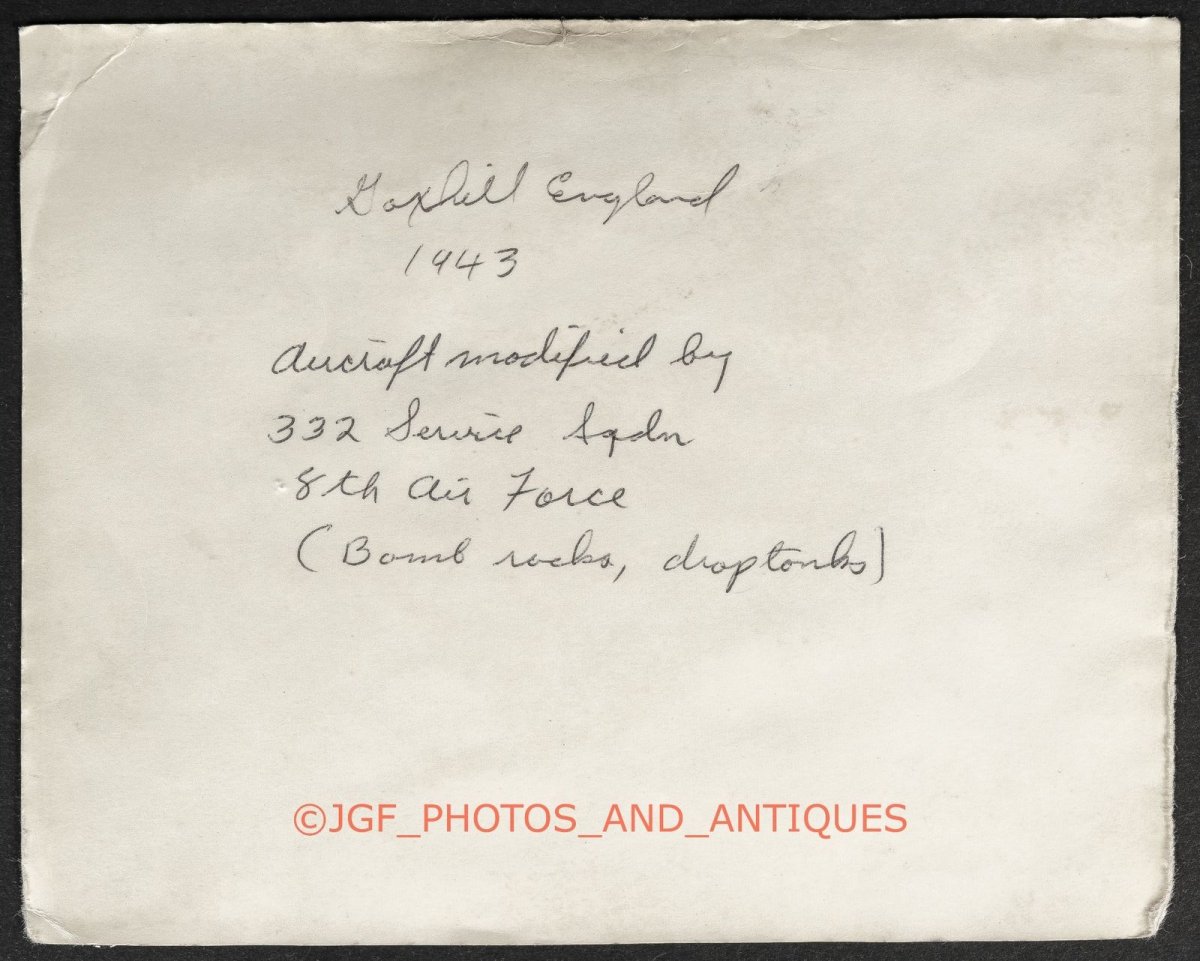 Goxhill England
1943
Aircraft modified by
332 Service Sqdn
8th Air Force
(Bomb racks, droptanks)
©JGF_PHOTOS_AND_ANTIQUES